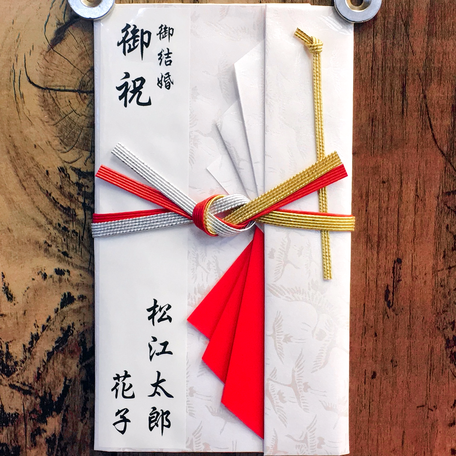 御結婚
御祝
松江太郎
花子